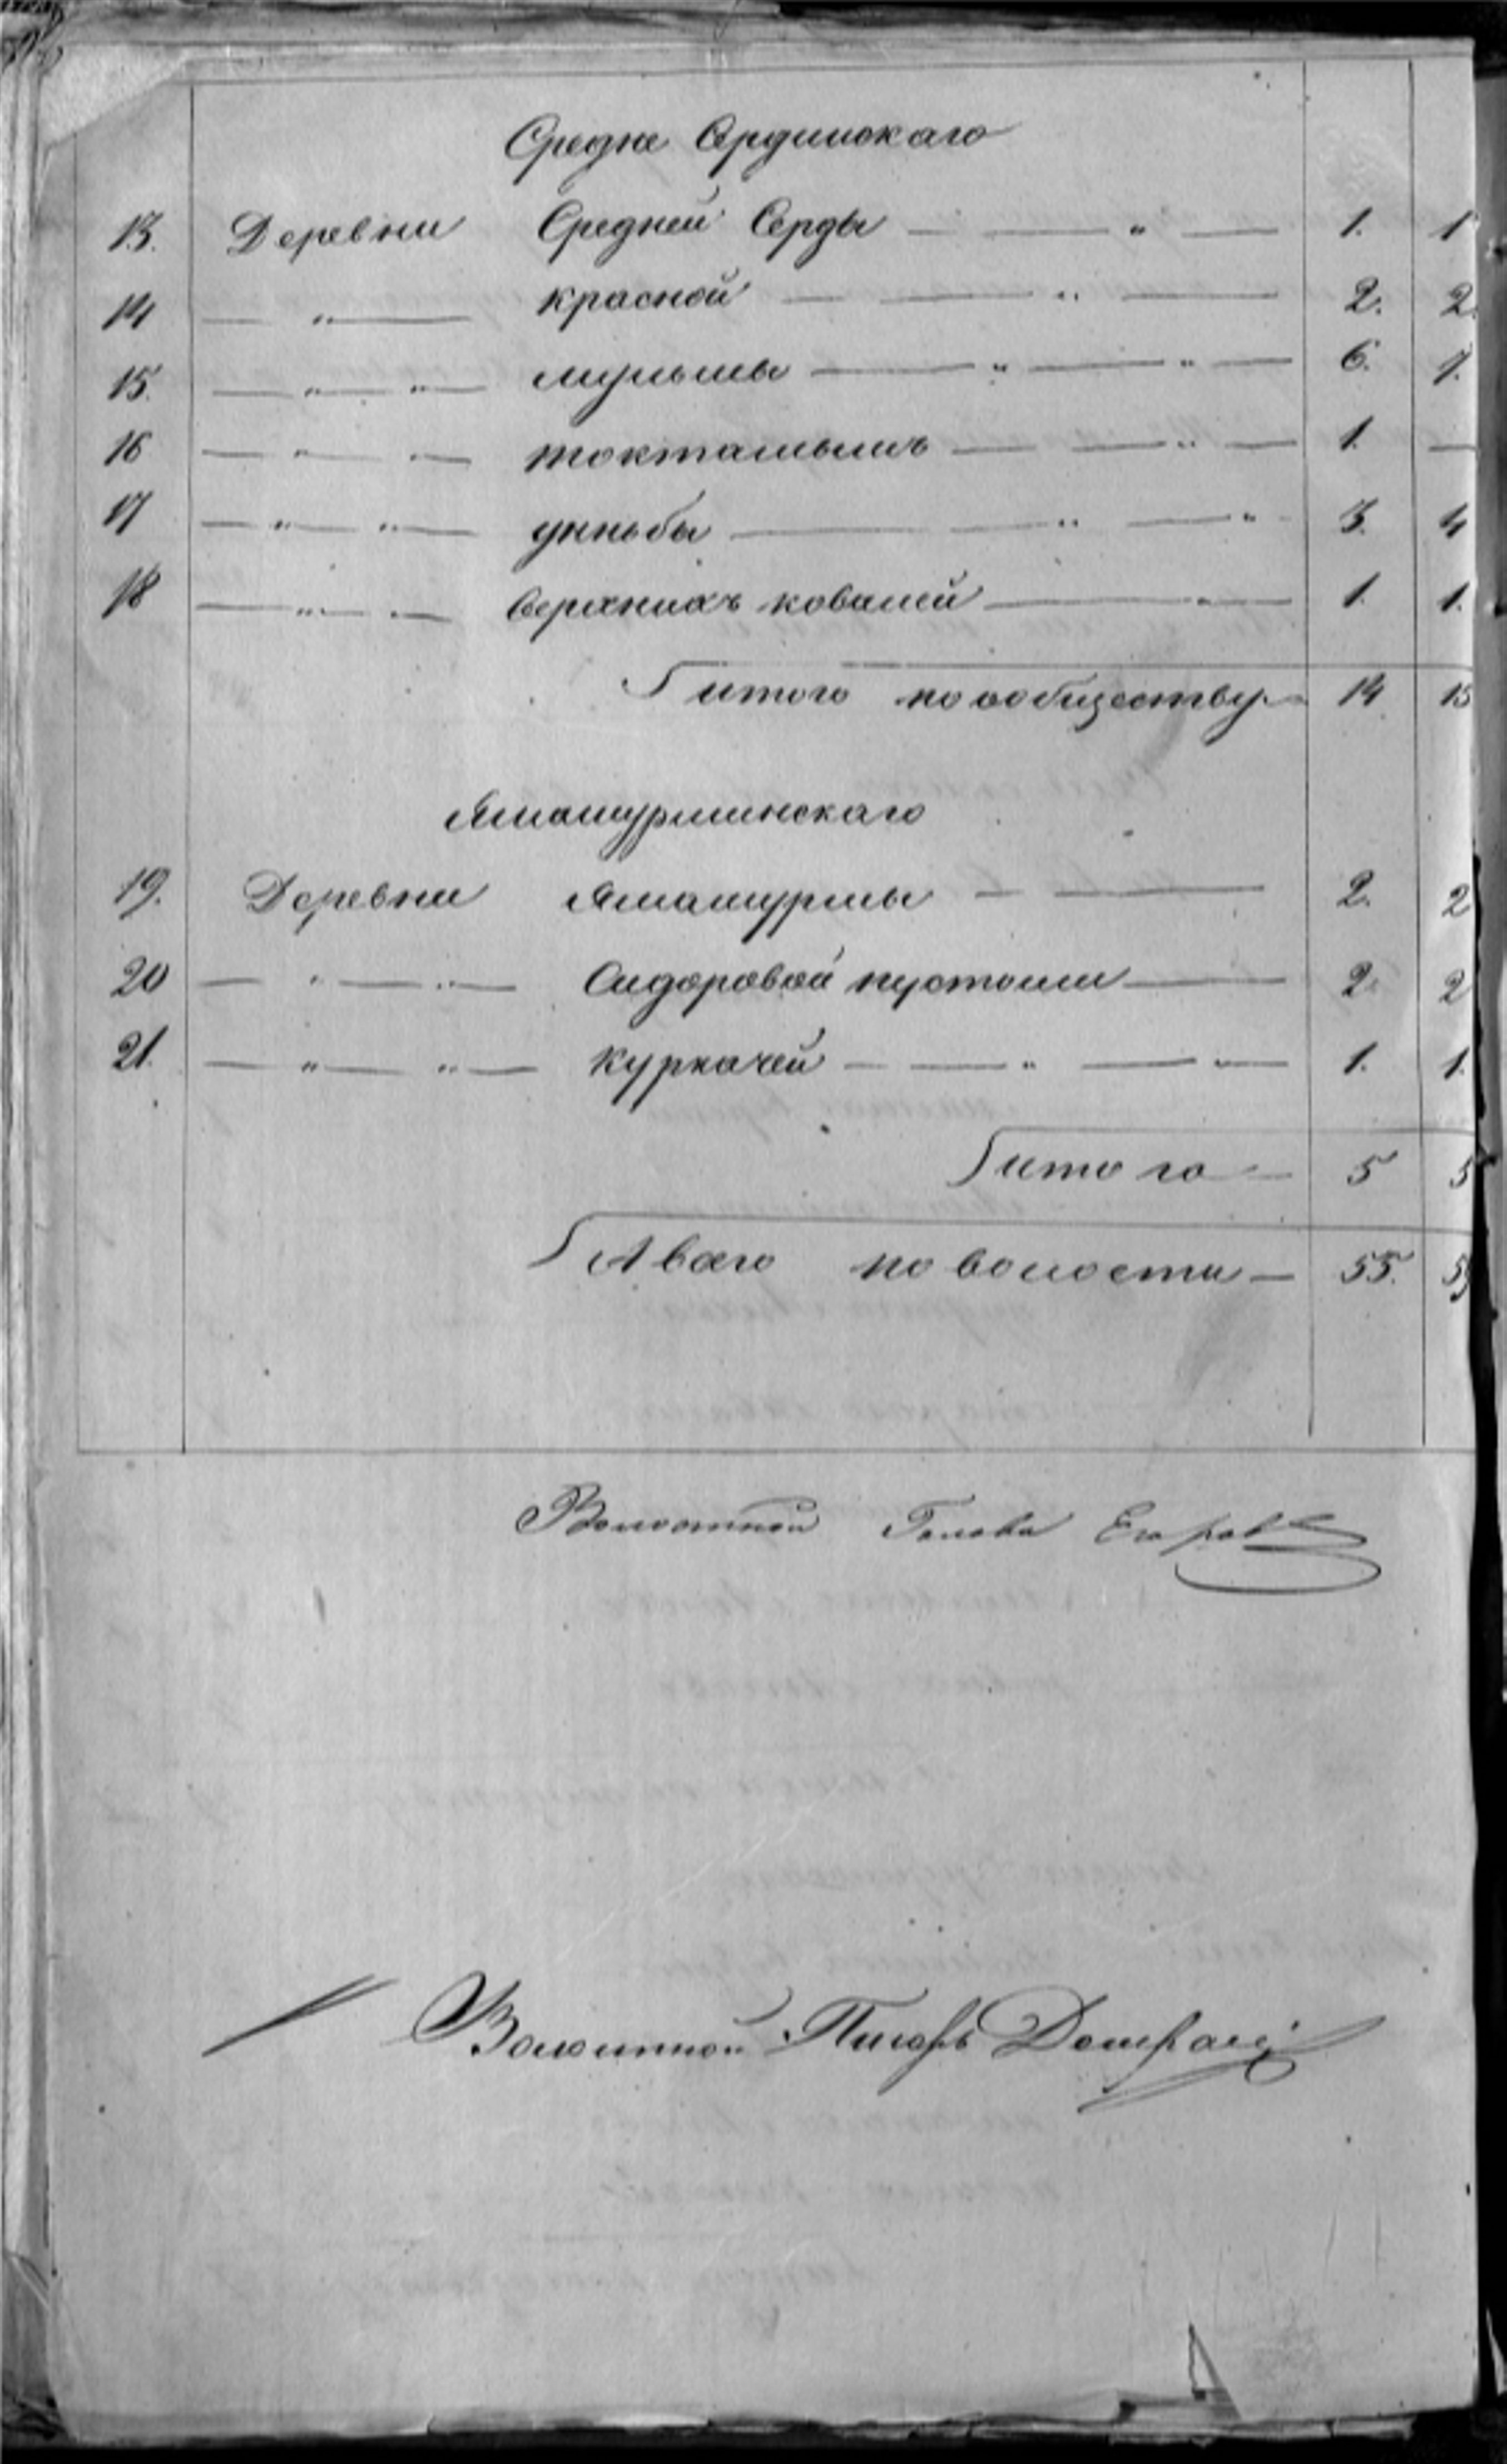 Средне Сердинскаго
13. Деревни Средней Серды — " — 1. 1
14 — " — Красной — " — 2. 2.
15. — " — " — мульмы — " — " — 6. 7.
16 — " — токтамышъ — " — 1. —
17 — " — " — унньбы — " — " 3. 4
18 — " — верхнихъ ковалей — " — 1. 1.
итого по обществу — 14 15
Ямашурминскаго
19. Деревни Ямашурмы — 2. 2
20 — " — " — Сидоровой пустоши — 2. 2
21. — " — " — Куркачей — " — " — 1. 1.
итого — 5 5
А всего по волости — 55. 5
Волостной Голова Егоров
Волостной Писарь